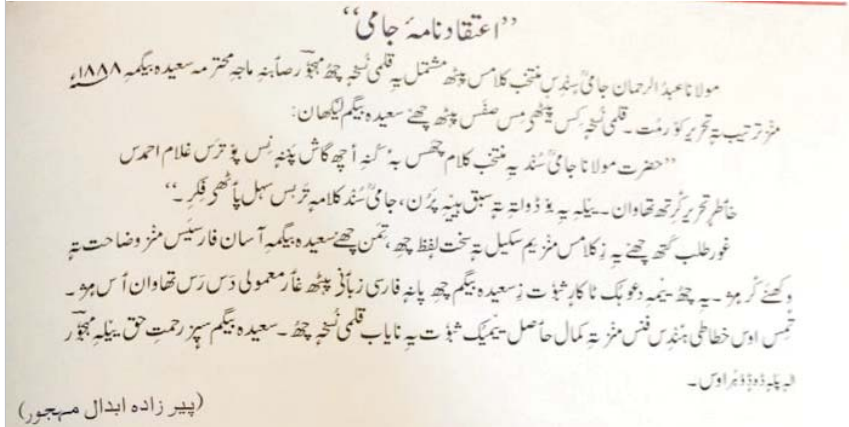 ”اعتقاد نامہٴ جامی“
مولانا عبدالرحمان جامیؒ سٕندِس منتخب کلامس پؠٹھ مشتمل یہِ قلمی نُسخہٕ چھُ مہجوٗرؔ صٲبنہِ ماجہِ محترمہ سعیدہ بیگمہِ ۱۸۸۸ء
منٛز ترتیب تہٕ تحریر کوٚرمُت۔ قلمی نُسخہٕ کِس پٔتمِس صفَس پؠٹھ چھےٚ سعیدہ بیگم لیٚکھان:
”حضرت مولانا جامیؒ سُنٛد یہِ منتخب کلام چھَس بہٕ لُکٕنہِ أچھ گاش پننِہ نِس پوٚترَس غلام احمدس
خٲطرٕ تحریر کٔرِتھ تھاوان۔ ییٚلہِ یہِ بوٚڈ واتہِ تہٕ سبق ہیٚیہِ پَرُن، جامیؒ سُنٛد کلامہِ ترٛبِس سہل پٲٹھی فِکرِ۔“
غور طلب کَتھ چھےٚ یہِ زِ کلامس منٛز یِم سکیل تہٕ سخت لفٕظ چھِ، تِمَن چھےٚ سعیدہ بیگمہِ آسان فارسیَس منٛز وضاحت تہٕ
وکھنَے کٔرمٕژ۔ یہِ چھُ ییٚمہِ دعوہُک ناکارٕ ثبوٗت زِ سعیدہ بیگم چھِ پانہٕ فارسی زبٲنؠ پؠٹھ غٲر معمولی دَس رَس تھاوان أسمٕژ۔
تٔمِس اوس خطاطی ہٕنٛدِس فنَس منٛز تہِ کمال حٲصل یِمیُک ثبوٗت یہِ نایاب قلمی نُسخہٕ چھُ۔ سعیدہ بیگم سپٕز رحمتِ حق ییٚلہِ مہجوٗرؔ
الہٕ پلہٕ دۄن ؤہُر اوس۔
(پیر زادہ ابدال مہجور)